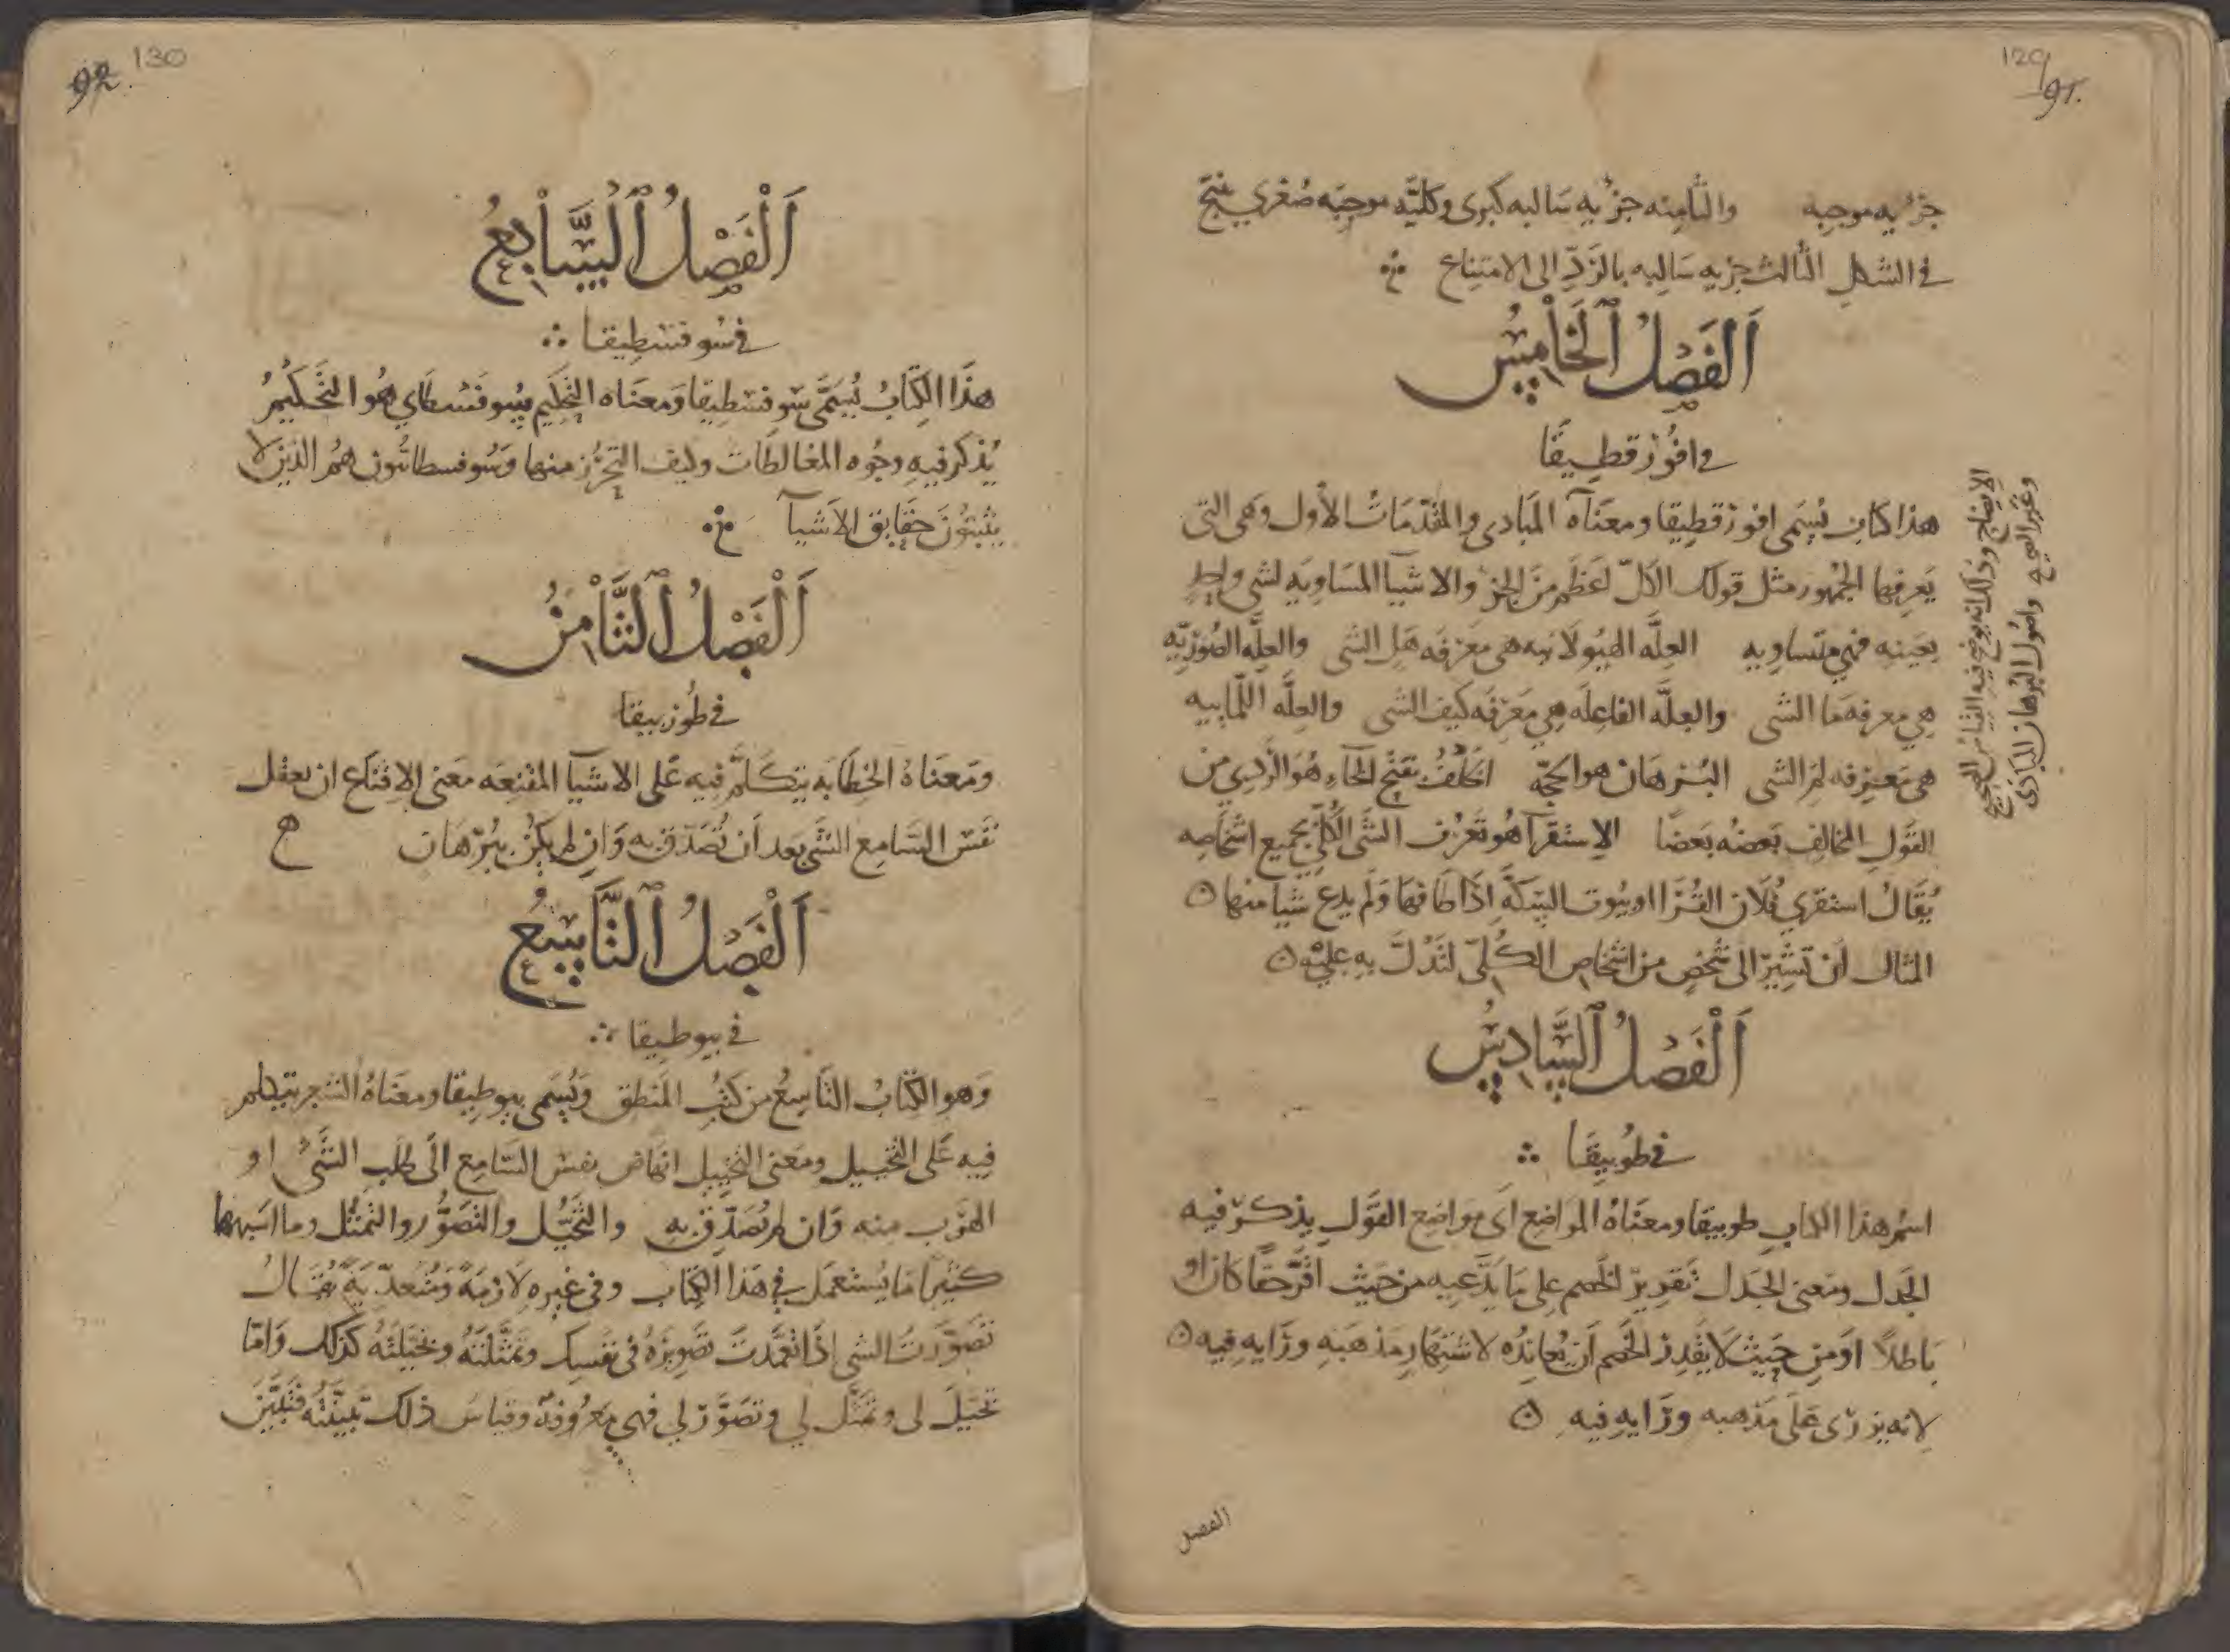 129
91.
جزئيه موجبه والثامنه جزئيه سالبه كبرى وكليّه موجبه صغرى ينتج
في الشكل الثالث جزيه سالبه بالرَدِّ الى الامتناع
اَلْفَصْلُ ٱلْخَامِسُ
في افُوذقطِيقَا
هذا كتاب يُسَمى افوذقطِيقا ومعنَاه المبَادى والمقدّمَات الأُول وهى التى
يَعرِفها الجمهُور مثل قولك الكلّ اعظم مِنَ الجز والاشيآ المسَاوِيَه لشى واحِدٍ
بعَينِه فهي متساوِيه العِلَّه الهيُولانيه هى مَعرفَه هَل الشى والعلّه الصُورِيّه
هِي معرفه مَا الشى والعلَّه الفاعِلَه هِي مَعرِفَه كيف الشى والعلّه اللّماييه
هى مَعرِفه لِمَ الشى البُرهَان هو الحجّه الخَلْفُ بفتح الخَاءِ هُوَ الرَدِي من
القَولِ المخالِفِ بَعضُه بَعضًا الاِستقرآ هُو تَعَرُّف الشَى الكُلّي بجَمِيع اشخَاصِه
يُقَالُ استقرى فُلَان القُرَا او بيُوت السِكَّةِ اذَا طَافهَا وَلَم يدع شيا منها
المثال اَن تُشِيرَ الى شَخصٍ من اشخَاصِ الكُلّى لتَدُلّ بِهِ عليْهِ
اَلْفَصْلُ ٱلسَّادِسُ
في طُوبِيقَا
اسمُ هذا الكتابِ طوبيقا ومعنَاهُ المواضِع اَى مواضِع القَولِ يذكر فيه
الجَدل ومَعنى الجَدل تَقرِيرُ الخَصم عَلى مَا يَدَّعيهِ من حَيث اقرّ حقًا كان او
بَاطلًا اوَ مِن حَيث لَا يَقدِر الخَصم اَن يُعانِدُه لاشتهَارِ مَذهَبِه ورَايهِ فِيه
لانه يزرى عَلَى مَذهبه ورَايهِ فيه
الفصل
الايضاح وذلك انه يوضح فيه القياس الصحيح
وغير الصحيح واصُول البُرهان المبَادى
130
92.
اَلْفَصْلُ ٱلسَّابِعُ
في سُوفسطِيقا
هذَا الكِتَابُ يُسَمَّى سُوفسطِيقا وَمعنَاه التحَكيم وسُوفَسْطَاي هُو التَّحَكيمُ
يُذكر فِيهِ وجُوه المغالطَات وكيف التحَرُّز منها وَسُوفسطائيُون همُ الذين لا
يثبتُونَ حَقايق الاَشيآ
اَلْفَصْلُ ٱلثَّامِنُ
في طُوريقا
ومَعناهُ الخطَابَه يتكَلَّم فِيه عَلى الاشيآ المقنِعَه مَعَنى الاِقنَاع ان يعقل
نَفس السَامِع الشَى بَعد اَن تُصَدّق به وَان لم يكن ببُرهَان
اَلْفَصْلُ ٱلتَّاسِعُ
في بيوطيقا
وَهو الكِتَابُ التَاسِعُ من كتُبِ المَنطق وَيُسَمى بيوطيقا ومعنَاهُ الشعر يتكلم
فِيهِ عَلى التخييل ومَعنى التخيِيل انهَاض نفس السَامِع الى طَلَبِ الشَىْ او
الهَرَب منه وَان لم يُصَدّق بِه والتَّخيُّل والتَصَوُّر والتمثُّل وما اشبهها
كثيرا مَا يُستَعمَل في هَذَا الكتاب وفى غيرِه لَازمَةً ومُتَعدِّيَةً يُقَالُ
تَصَوّرتُ الشى اذَا تعمَّدتَ تَصَوِيرَهُ فى نفسك وتمثَّلتَهُ وتخيّلتَهُ كذلك وَامّا
تخيّلَ لى وتمثَّل لِي وتصَوَّر لِي فهى مَعرُوفه وقياس ذلك تبيّنتُه فتبيَّن